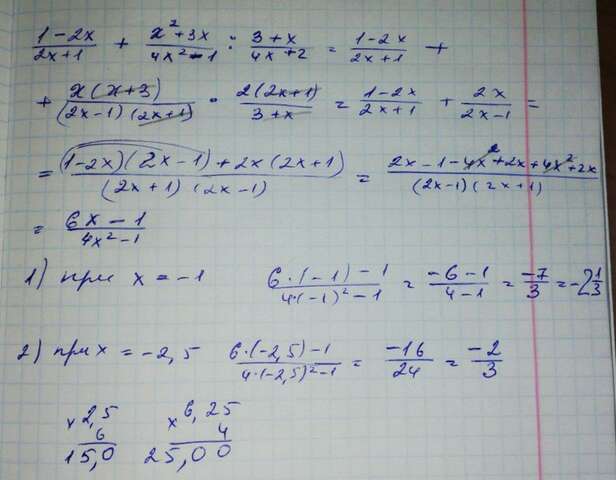 (1-2x)/(2x+1) + (x²+3x)/(4x²-1) : (3+x)/(4x+2) = (1-2x)/(2x+1) +
+ x(x+3)/((2x-1)(2x+1)) · 2(2x+1)/(3+x) = (1-2x)/(2x+1) + 2x/(2x-1) =
= ((1-2x)(2x-1)+2x(2x+1))/((2x+1)(2x-1)) = (2x-1-4x²+2x+4x²+2x)/((2x-1)(2x+1))
= (6x-1)/(4x²-1)
1) при x = -1 (6·(-1)-1)/(4·(-1)²-1) = (-6-1)/(4-1) = -7/3 = -2 1/3
2) при x = -2,5 (6·(-2,5)-1)/(4·(-2,5)²-1) = -16/24 = -2/3
x 2,5 x 6,25
6 4
15,0 25,00